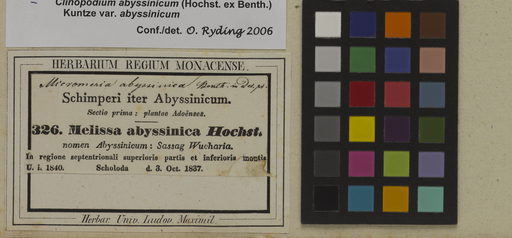 Clinopodium abyssinicum (Hochst. ex Benth.)
Kuntze var. abyssinicum
Conf./det. O. Ryding 2006
HERBARIUM REGIUM MONACENSE.
Micromeria abyssinica Benth. in Dec. pr.
Schimperi iter Abyssinicum.
Sectio prima: plantae Adoënses.
326. Melissa abyssinica Hochst.
nomen Abyssinicum: Sassag Wucharia.
In regione septentrionali superioris partis et inferioris montis
U. i. 1840. Scholoda d. 3. Oct. 1837.
Herbar. Univ. Ludov. Maximil.